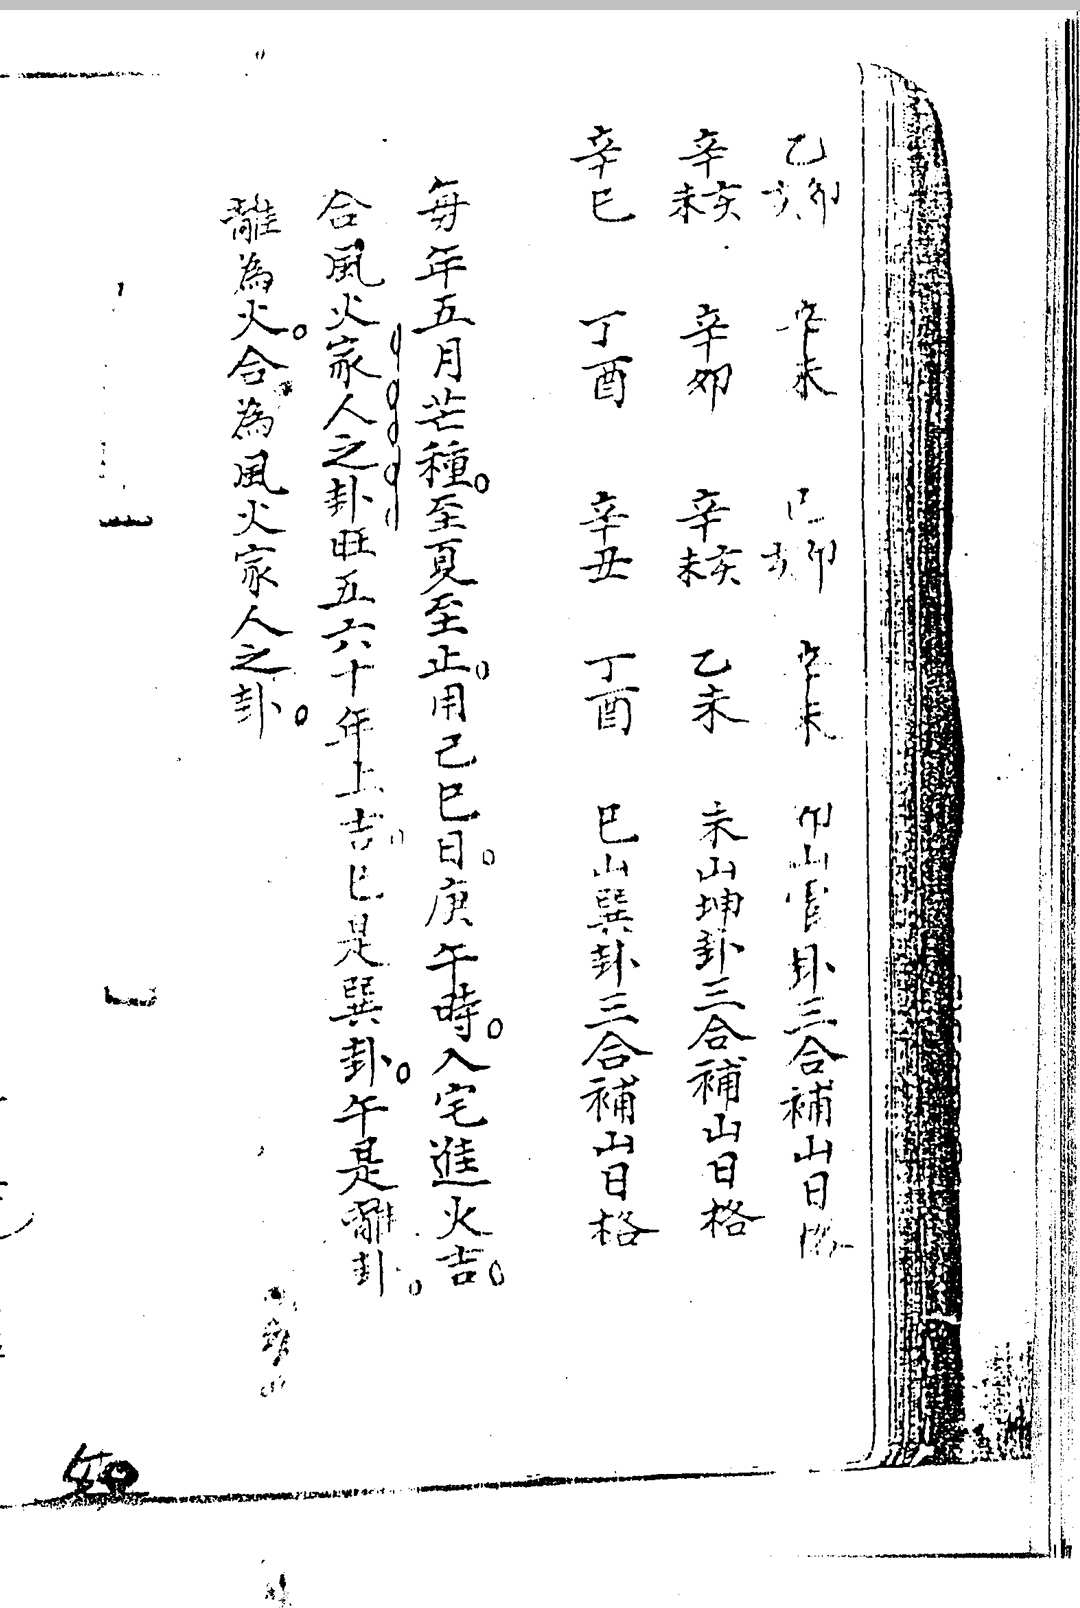 乙卯亥 辛未 己卯亥 辛未 卯山 卦三合補山日格
辛亥未 辛卯 辛亥未 乙未 未山坤卦三合補山日格
辛巳 丁酉 辛丑 丁酉 巳山巽卦三合補山日格
每年五月芒種至夏至止用己巳日庚午時入宅進火吉
合風火家人之卦旺五六十年上吉巳是巽卦午是離卦
離為火合為風火家人之卦